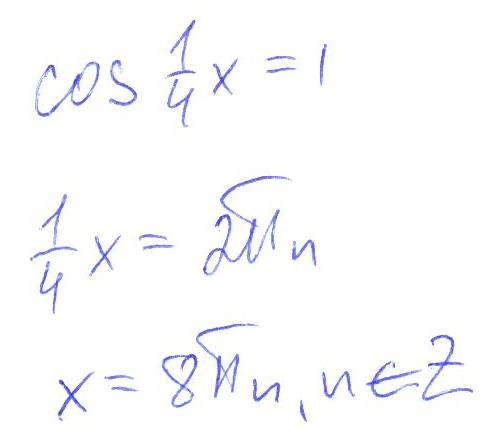 cos 1/4 x = 1
1/4 x = 2πn
x = 8πn, n ∈ Z